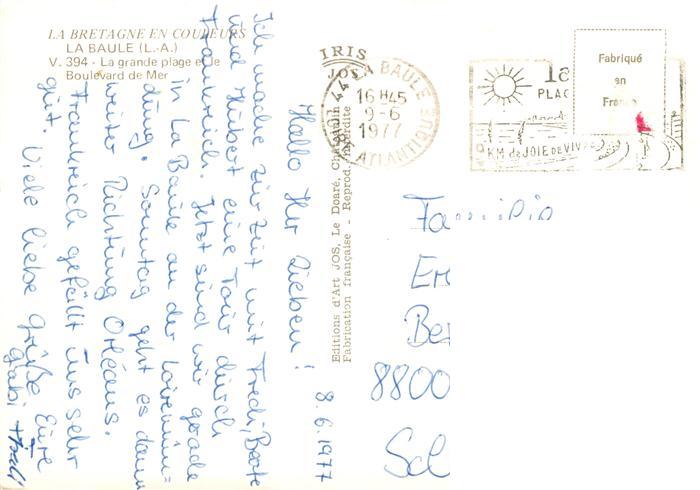 LA BRETAGNE EN COULEURS
LA BAULE (L.-A.)
V. 394 - La grande plage et le
Boulevard de Mer
IRIS
JOS
LA BAULE
16 H45
9-6
1977
ATLANTIQUE
PLAC
KM de JOIE DE VIVRE
Fabriqué
en
France
Editions d'Art JOS, Le Doaré, Châteaulin
Fabrication française - Reprod. interdite
8.6.1977
Hallo Ihr Lieben!
Ich mache zur Zeit mit Fredi, Beate
und Hubert eine Tour durch
Frankreich. Jetzt sind wir gerade
in La Baule an der Loiremün=
dung. Sonntag geht es dann
weiter Richtung Orléans.
Frankreich gefällt uns sehr
gut. Viele liebe Grüße Eure
Gabi
Familie
8800